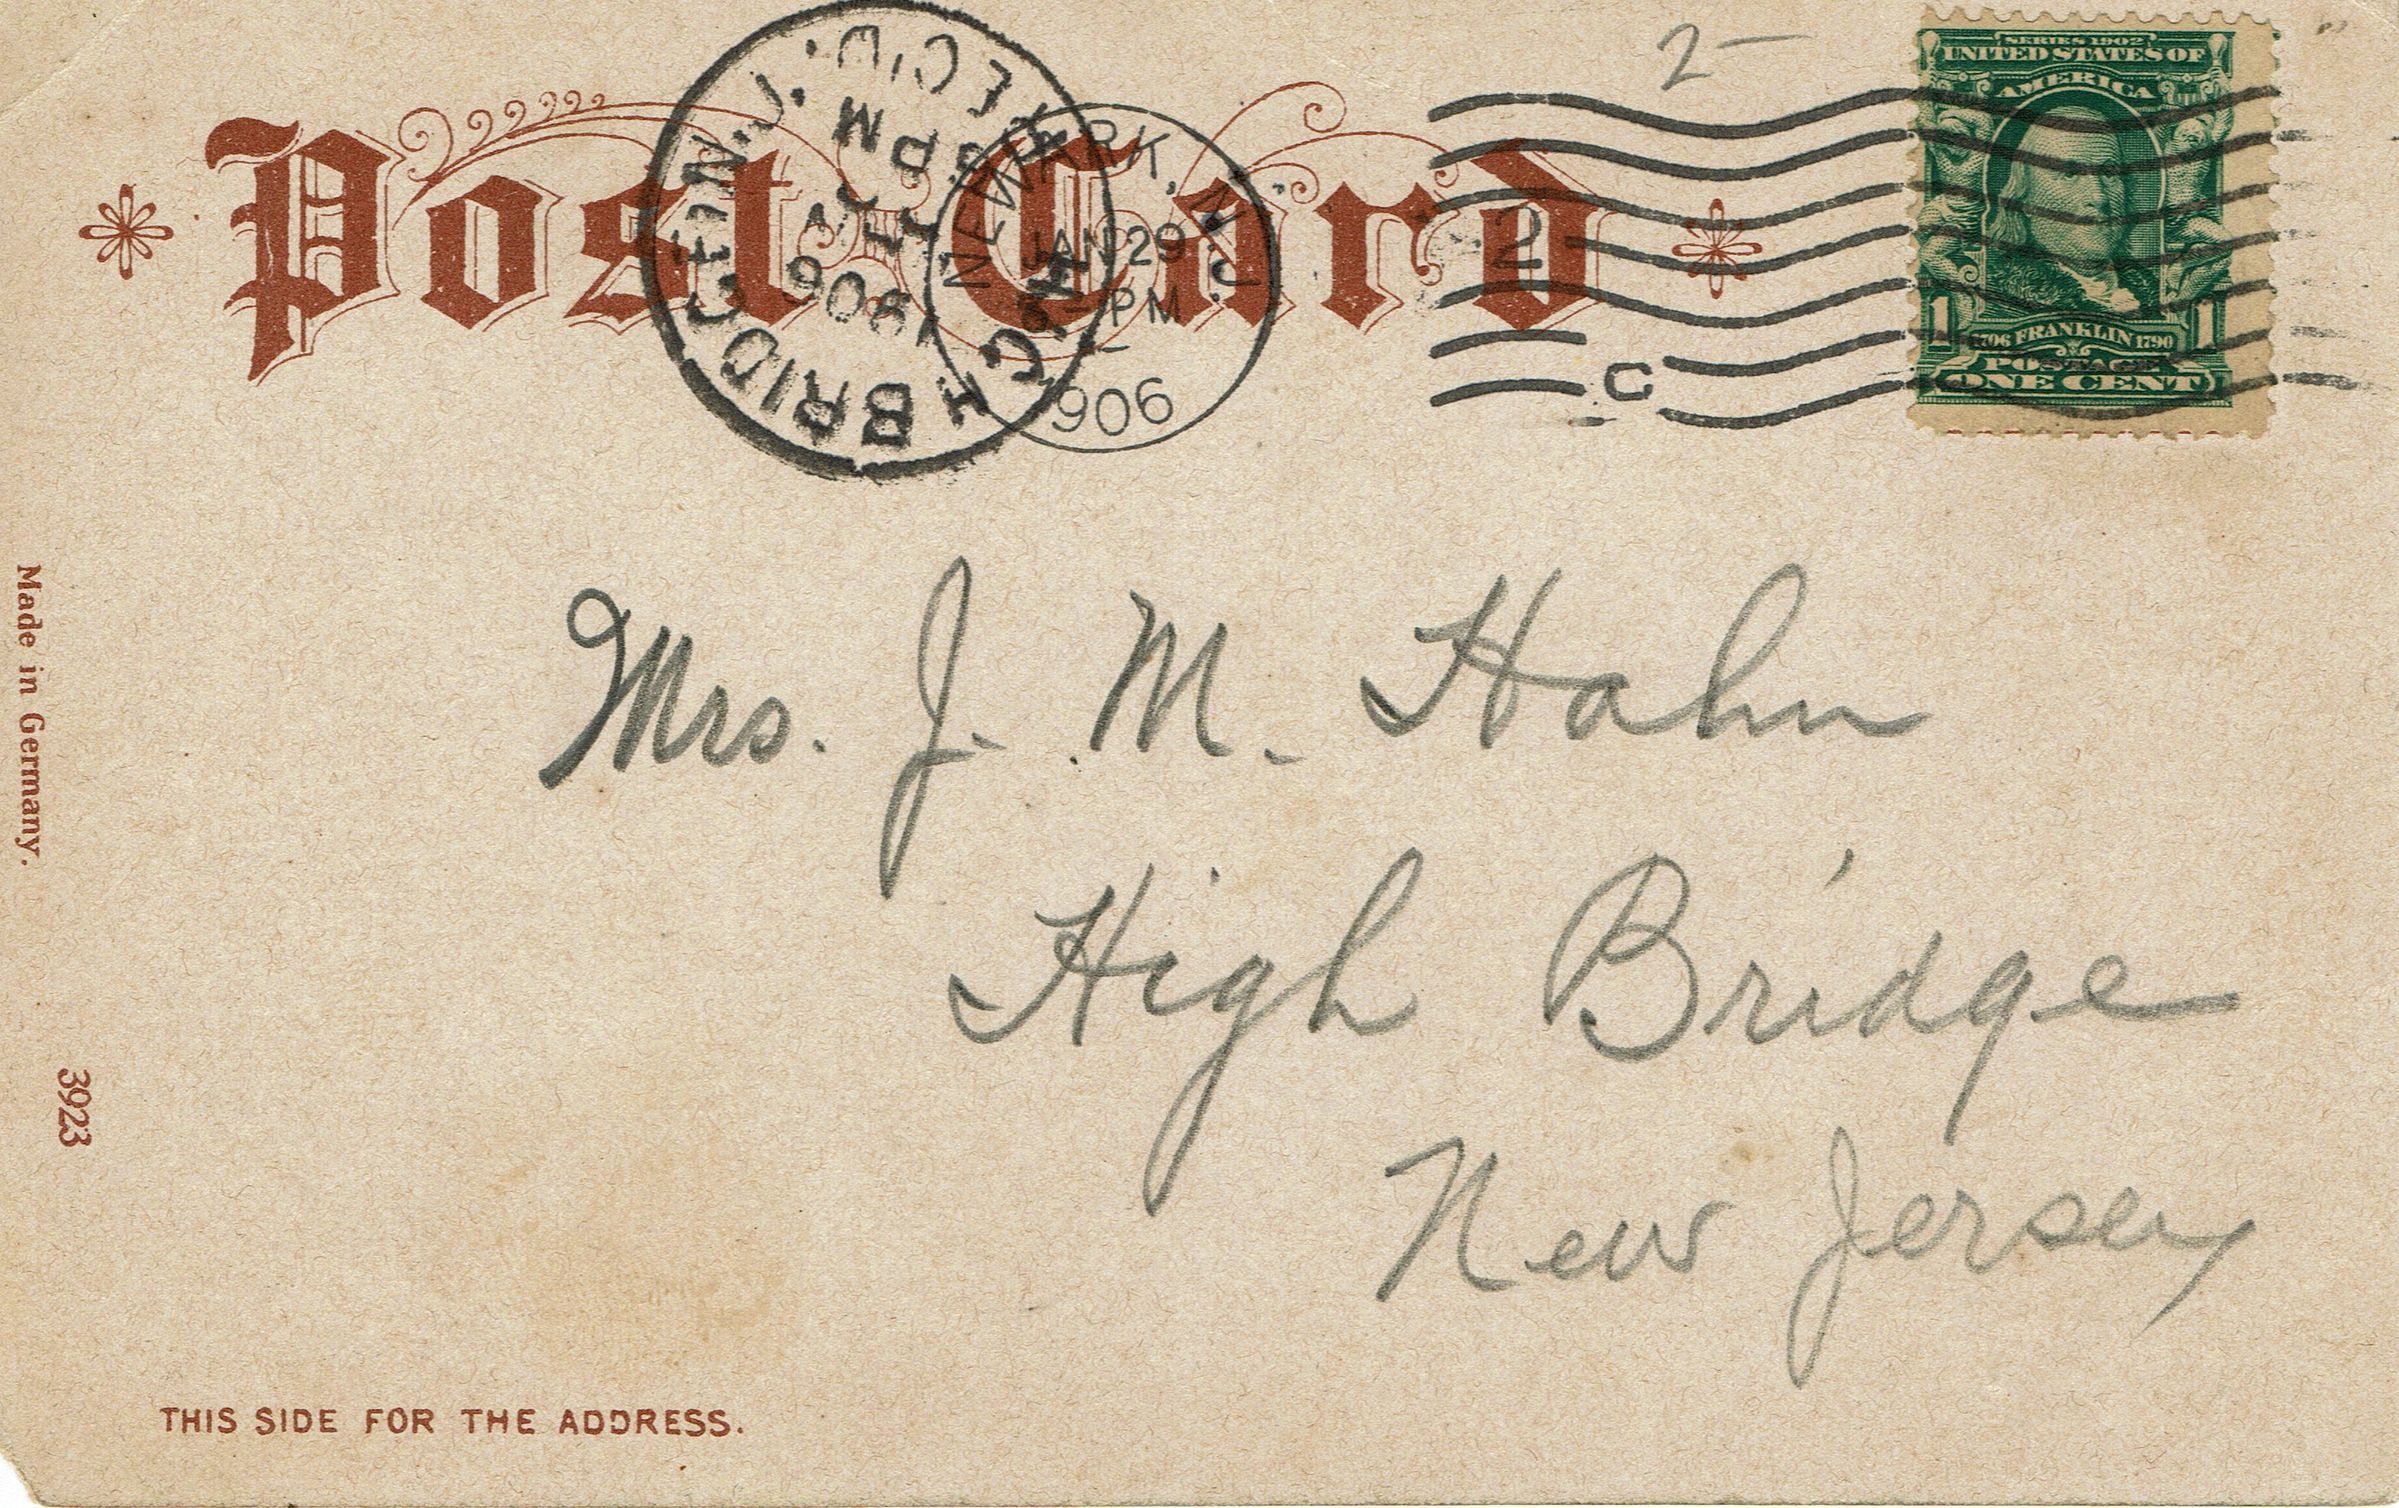 2-
SERIES 1902
UNITED STATES OF
AMERICA
1 1706 FRANKLIN 1790 1
POSTAGE
ONE CENT
Post Card
HIGH BRIDGE N.J.
REC'D.
PM
1906
NEWARK, N.J.
JAN 29
PM
1906
2
C
Mrs. J. M. Hahn
High Bridge
New Jersey
Made in Germany.
3923
THIS SIDE FOR THE ADDRESS.